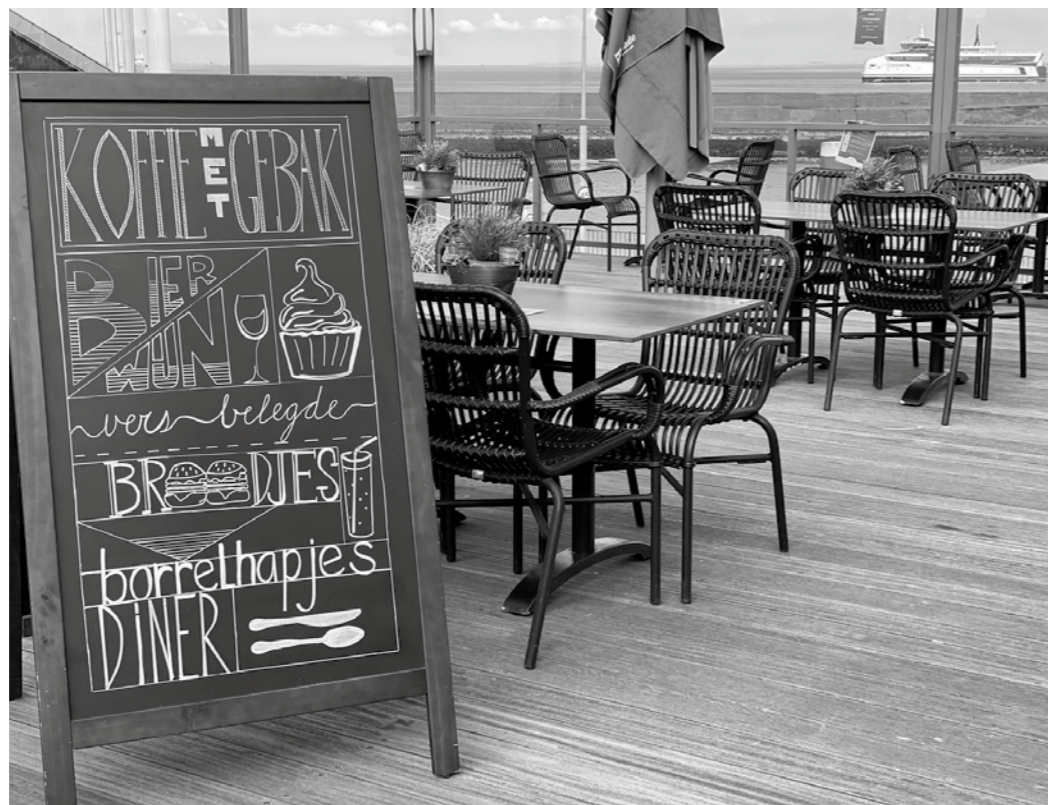 KOFFIE MET GEBAK
BIER
WIJN
vers belegde
BROODJES
borrelhapjes
DINER